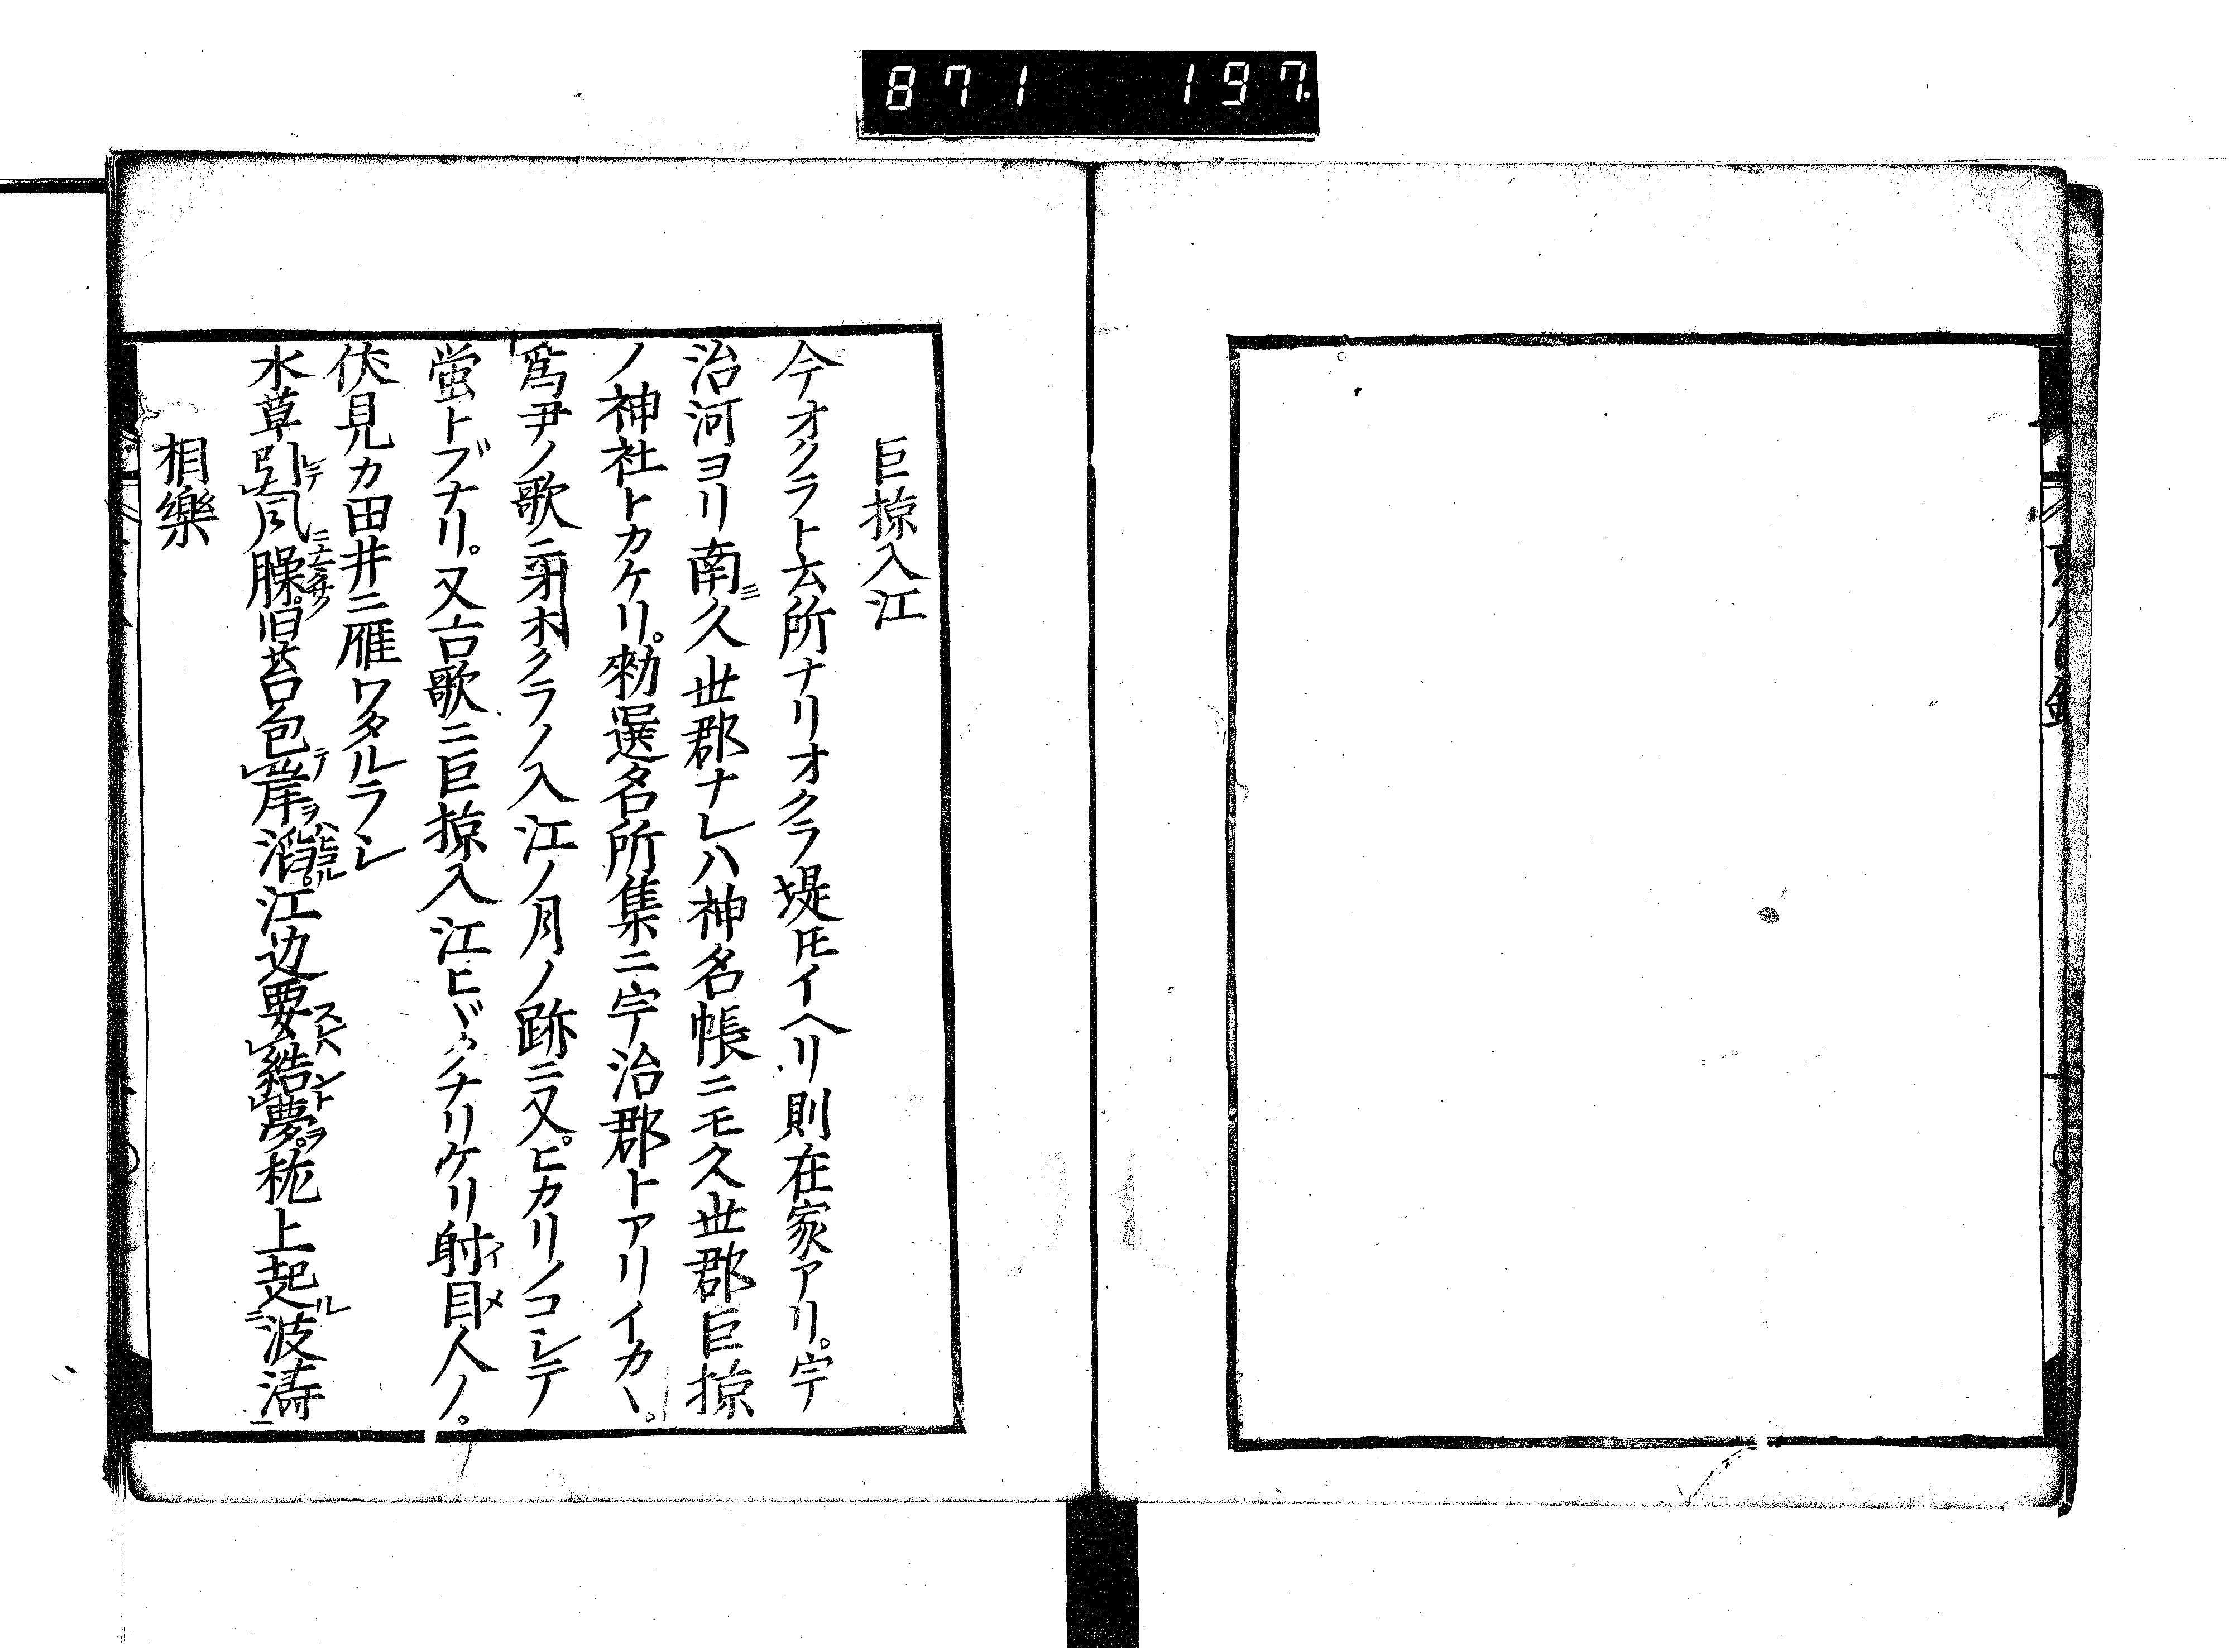 871 197.
巨掠入江
今オクラト云所ナリオクラ堤圧イヘリ則在家アリ。宇
治河ヨリ南ミ久世郡ナレハ神名帳ニモ久世郡巨掠
ノ神社トカケリ。勅選名所集ニ宇治郡トアリイカヽ。
爲尹ノ歌ニ
クラノ入江ノ月ノ跡ニ又ヒカリノコシテ
蛍トブナリ。又古歌ニ巨掠入江ヒヾクナリケリ射目人ノ。
イメ
伏見カ田井ニ雁ワタルラシ
水草引レテ風臊。旧苔包テ岸ヲ滔。江辺要結夢。枕上起ル波濤
相樂